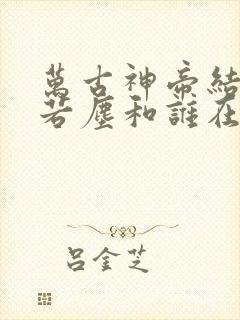 萬古神帝結
若塵和誰在
呂金芝